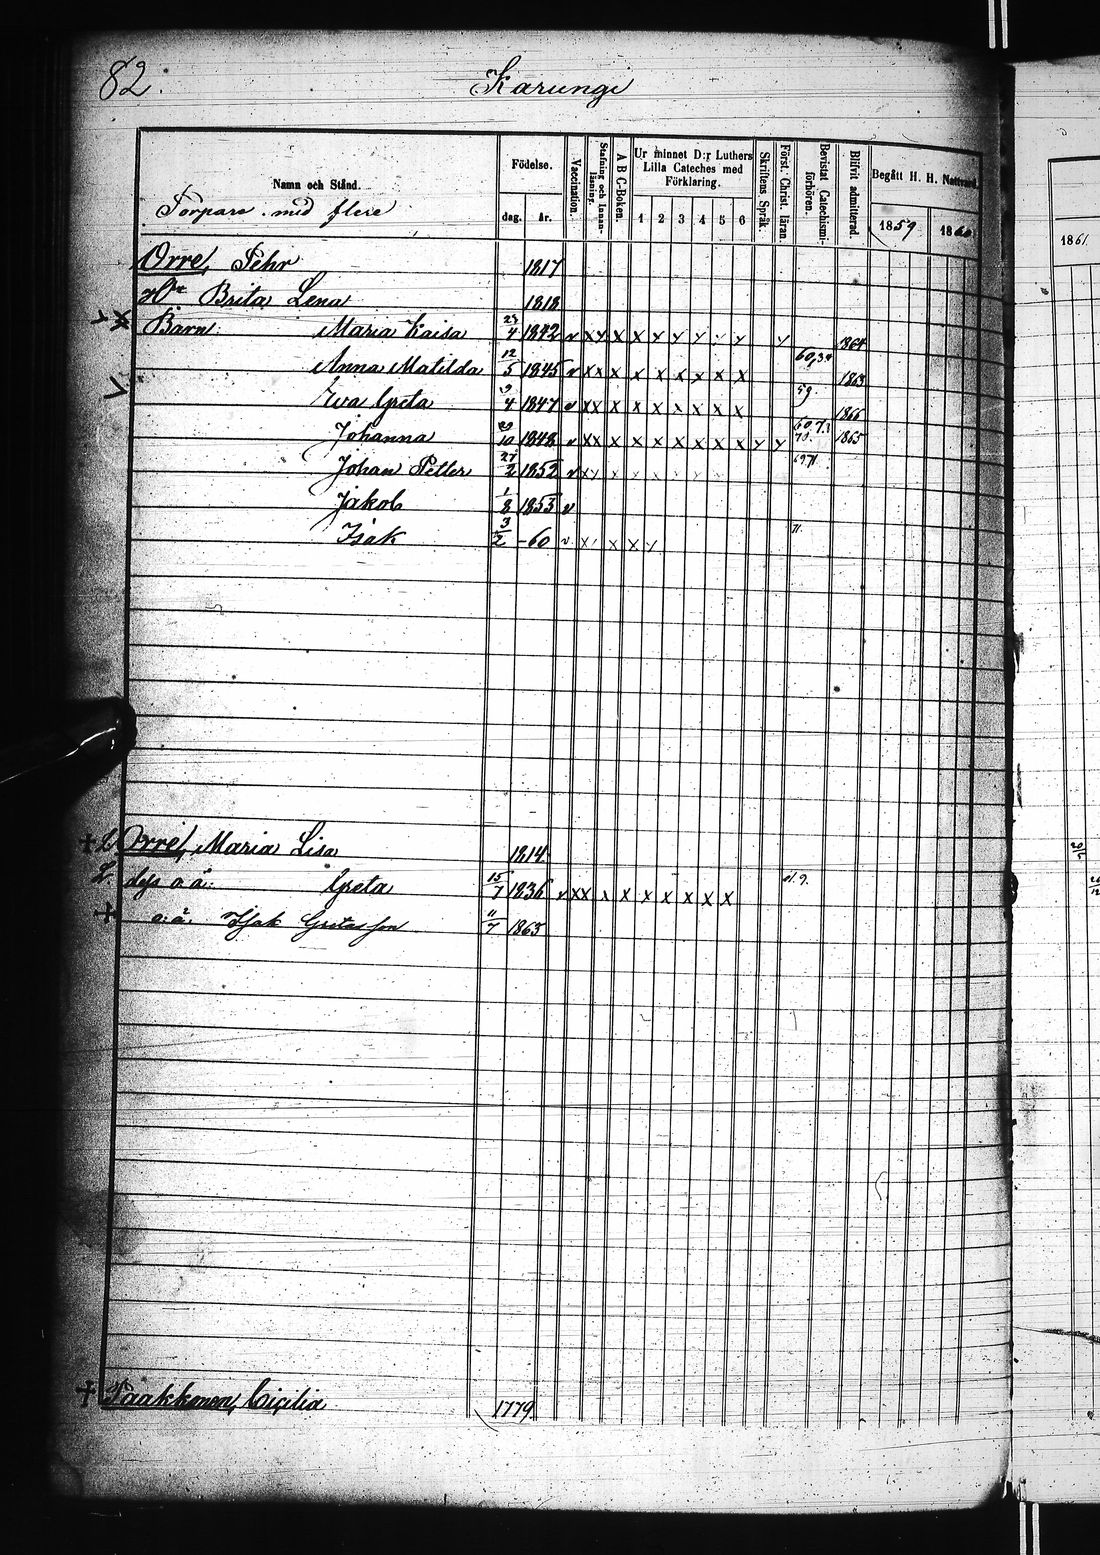 82.
Karungi
Namn och Stånd. Födelse. Vaccination. Stafning och Innanläsning. A B C-Boken. Ur minnet D:r Luthers Lilla Cateches med Förklaring. Skriftens Språk. Först. Christ. läran. Bevistat Catechismi-förhören. Blifvit admitterad. Begått H. H. Nattvard.
Torpare med flere dag. år. 1 2 3 4 5 6 1859 1860 1861
Orre, Pehr 1817
Brita Lena 1818
Barn Maria Kaisa 23/4 1842 v x x x x x x x x 1864
Anna Matilda 12/5 1845 v x x x x x x x x x 1863
Eva Greta 4 1847 v x x x x x x x x x 59. 1866
Johanna 10 1848 v x x x x x x x x x 1865
Johan Petter 27/2 1852 v x
Jakob 1/8 1853 v
Isak 3/2 -60 v x x x 71.
+ Orre, Maria Lisa 1814
Greta 15/7 1836 v x x x x x x x x x
+ Isak Gretasson 11/7 1863
+ Paakkonen, Cicilia 1779